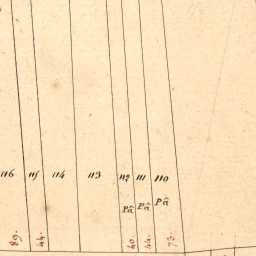 116 115 114 113 112 111 110
Pâ Pâ Pâ
89. 44. 40. 44. 73.